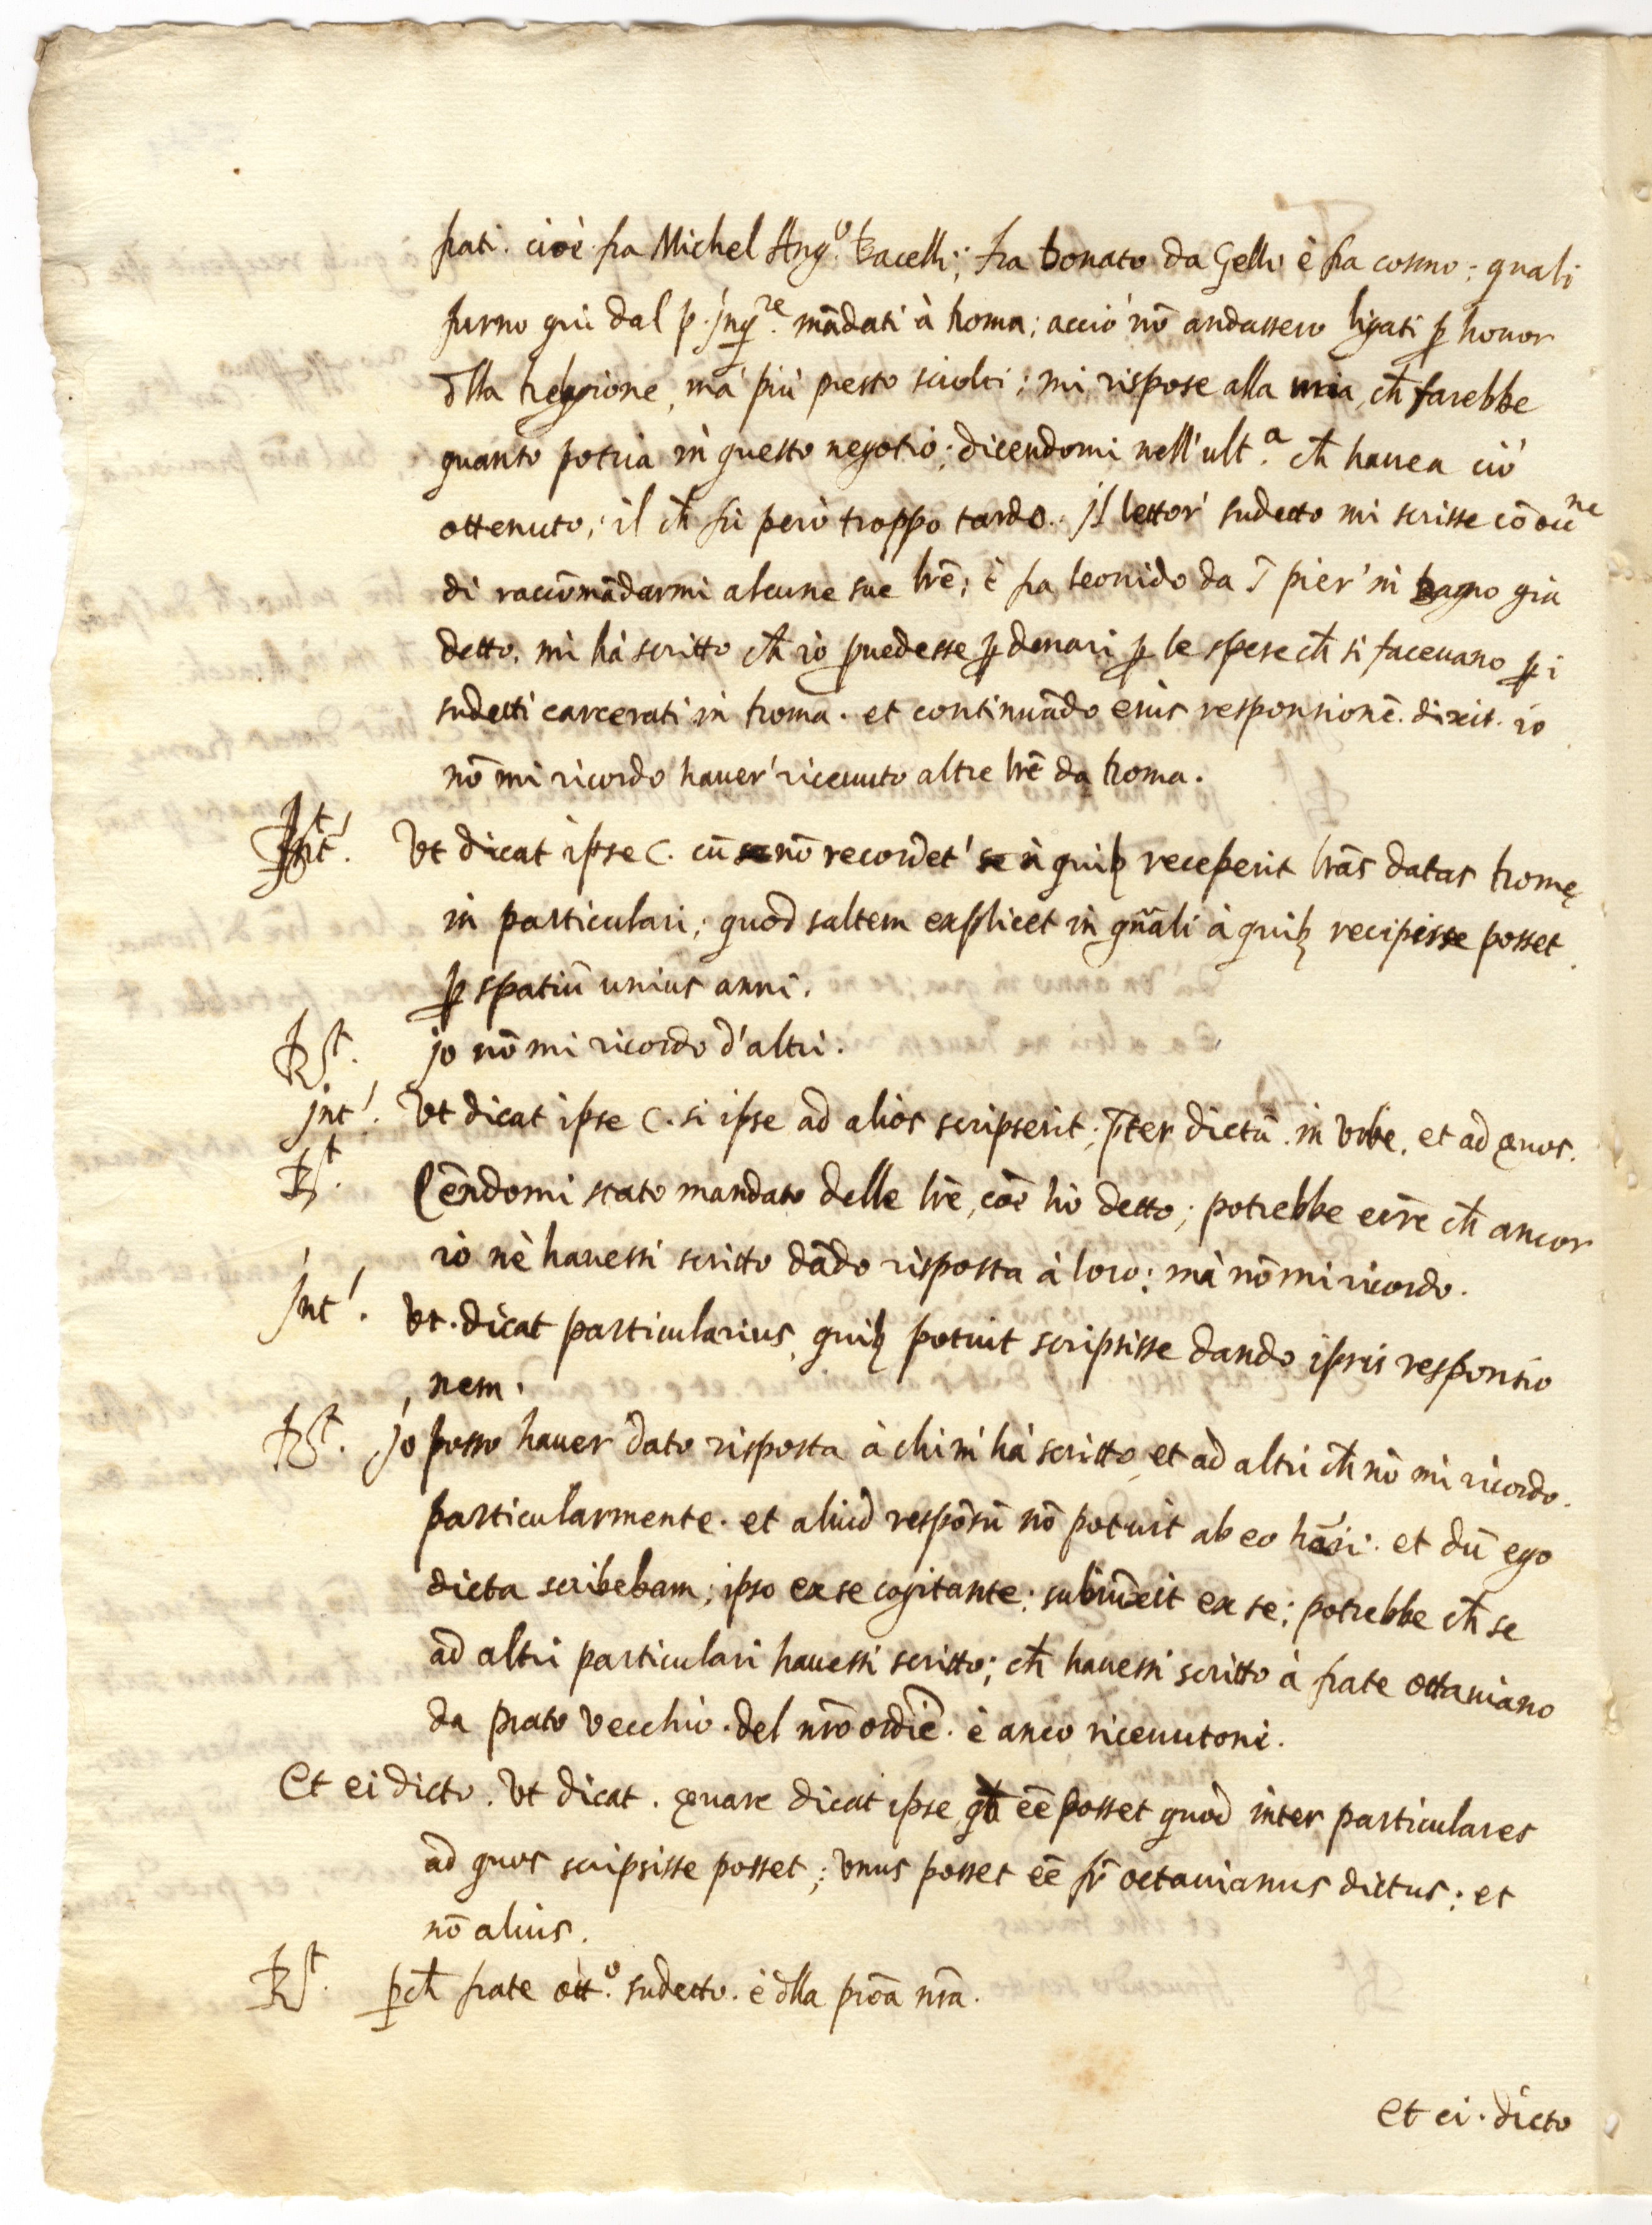 frati. cioè fra Michel Ang.º Bacelli; fra Donato da Gello è fra cosmo; quali
furno qui dal p. jnq.re mādati à Roma; acciò nō andassero ligati ꝑ honor
dlla Religione, mà più presto sciolti; mi rispose alla mia, ch̄ farebbe
quanto potria in questo negotio; dicendomi nell'ult.a ch̄ hauea ciò
ottenuto; il ch̄ fù però troppo tardo. jl lettor' sudetto mi scrisse cō occ.ne
di raccōmādarmi alcune sue lrē; è fra leonido da S̄ pier' in bagno già
detto. mi hà scritto ch̄ io ꝓuedesse ꝑ denari ꝑ le spese ch̄ si faceuano ꝑ i
sudetti carcerati in Roma. et continuādo eius responsionē. dixit. io
nō mi ricordo hauer' riceuuto altre lrē da Roma.
Int'. Vt dicat ipse C. cū nō recordet' à quibȝ receperit lrās datas Romę
in particulari; quod saltem explicet in gn̄ali à quibȝ recipisse posset
ꝑ spatiū unius anni.
Rt. jo nō mi ricordo d'altri.
jnt'. Vt dicat ipse C. si ipse ad alios scripserit; p̄ter dictū. in Vrbe. et ad quos.
Rt. Eēndomi stato mandato delle lrē, cōe hò detto; potrebbe eērē ch̄ ancor
io nè hauessi scritto dādo risposta à loro; mà nō mi ricordo.
jnt'. Vt. dicat particularius, quibȝ potuit scripsisse dando ipsis responsio
nem.
Rt. jo posso hauer dato risposta à chi m'hà scritto, et ad altri ch̄ nō mi ricordo.
particularmente. et aliud respōsū nō potuit ab eo hāri. et dū ego
dicta scribebam; ipso ex se cogitante; subiūxit ex se; potrebbe ch̄ se
ad altri particulari hauessi scritto; ch̄ hauessi scritto à frate ottauiano
da prato vecchio. del nrō ordīē. è anco riceuutoni.
Et ei dicto. Vt dicat. quare dicat ipse qd eē posset quod inter particulares
ad quos scripsisse posset; vnus posset eē fr̄ octauianus dictus; et
nō alius.
Rt. ꝑch̄ frate ott.º sudetto. è dlla prōa nrā.
et ei. dicto